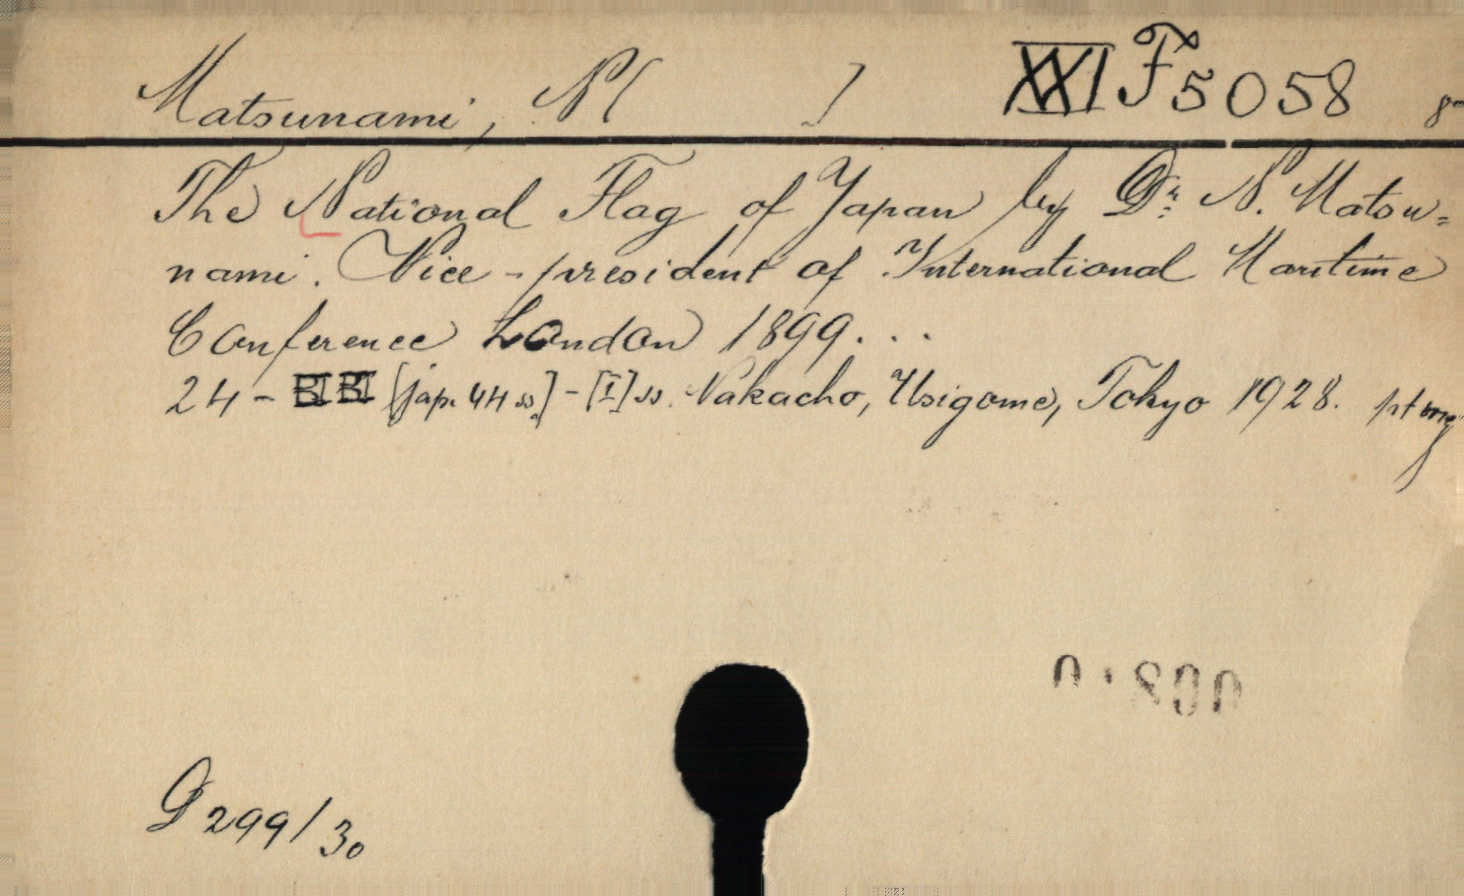 Matsunami, N[ ] XXI F 5058 8°
The National Flag of Japan by Dr. N. Matsu=
nami. Vice-president of International Maritime
Conference London 1899...
24 - [jap. 44 ss] - [I] ss. Nakacho, Usigome, Tokyo 1928.
D 299/30